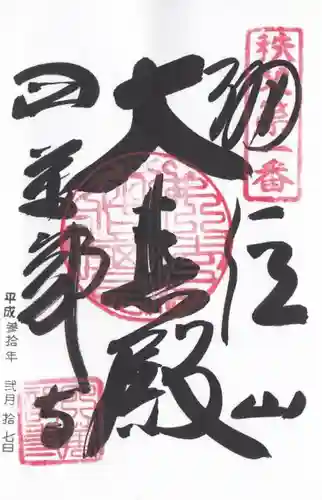 秩父第一番
誦経山
大悲殿
四萬部寺
平成参拾年 弐月拾七日